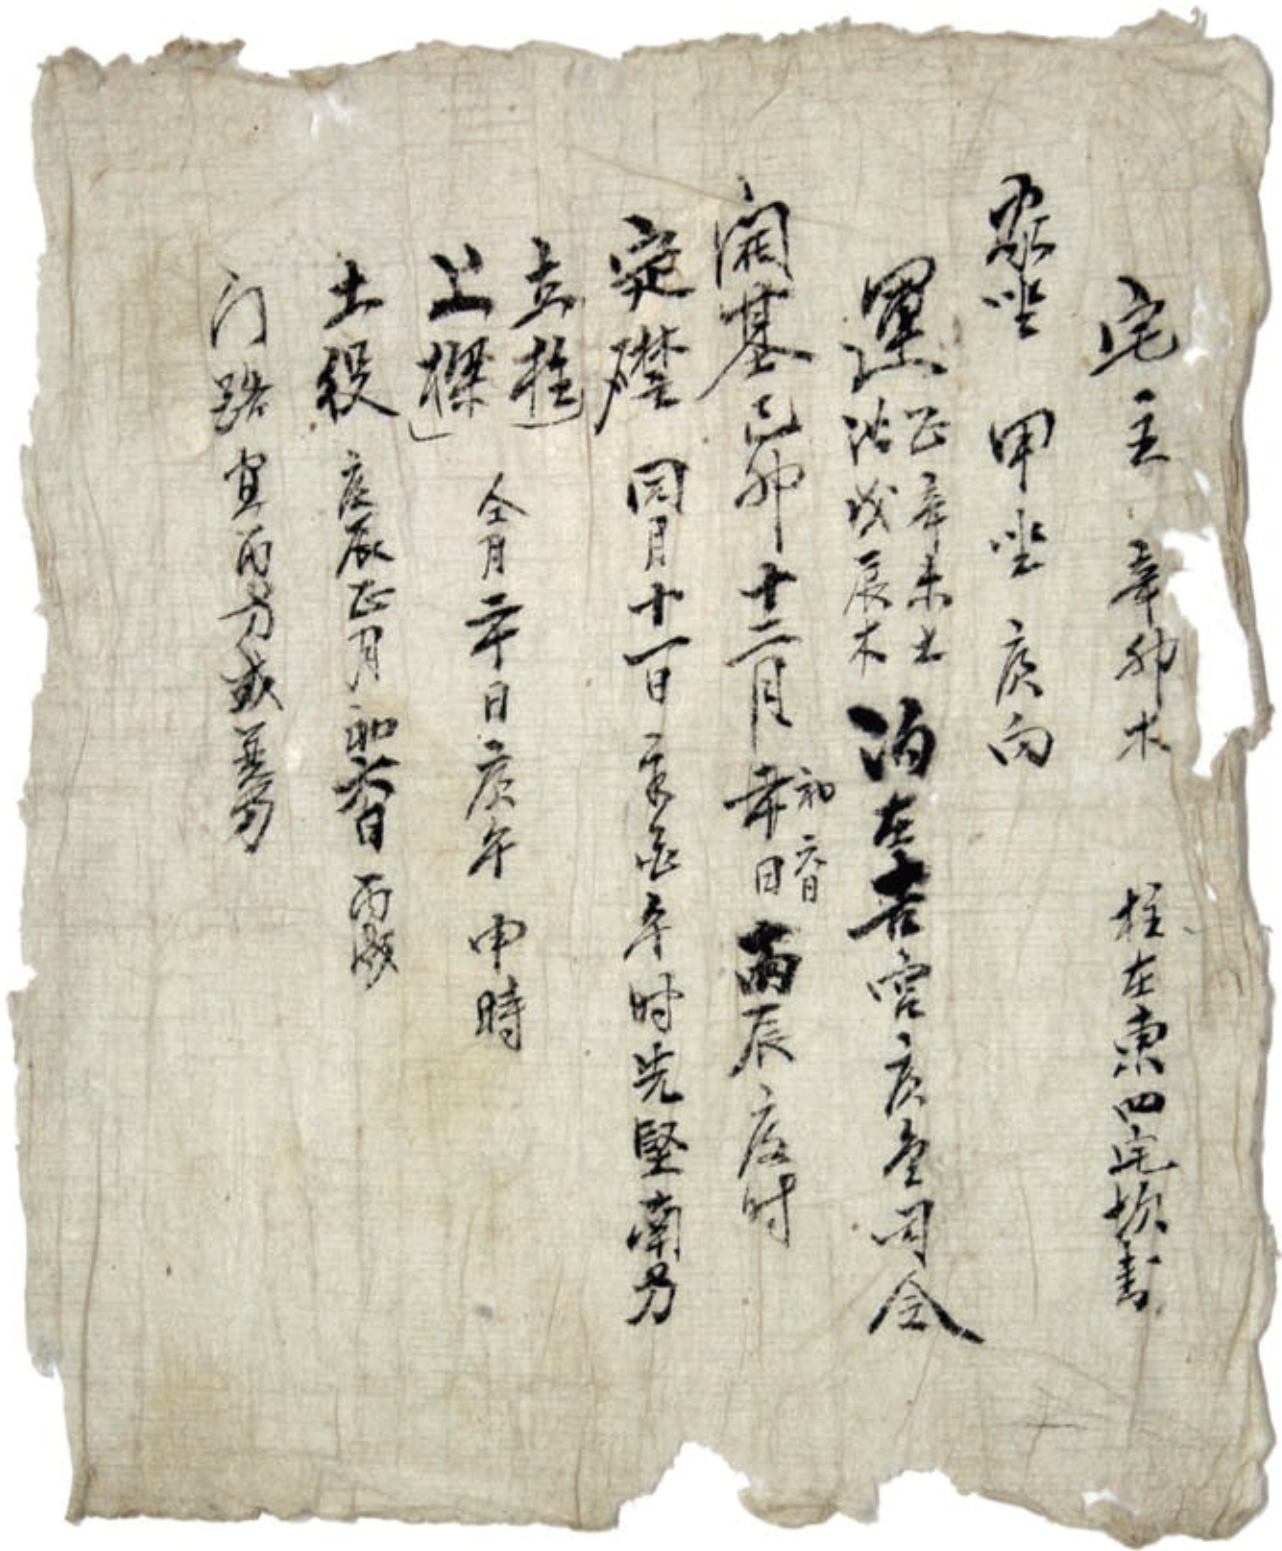 宅主 辛卯木 柱在東四宅坎
家坐 甲坐庚向
運 正辛未土 法戊辰木 泊在吉宮庚金同合
開基 己卯十二月 初六日 幸日 丙辰 辰时
定礎 同月十一日辛酉午时先堅南方
立柱
上樑 仝月二十日庚午 申時
土役 庚辰正月初六日丙戌
门路 宜丙方或巽方